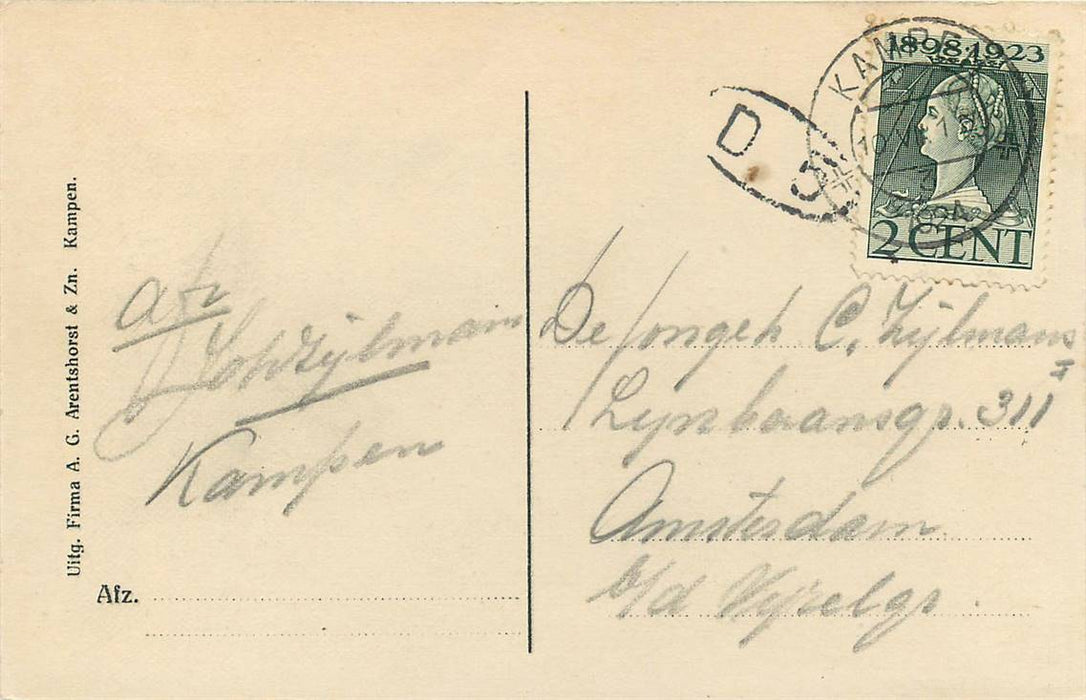 Uitg. Firma A. G. Arentshorst & Zn. Kampen.
Afz
Joh Zijlmans
Kampen
Afz.
D
5
KAMPEN
1898 1923
2 CENT
De Jongeh. C. Zijlmans
Lijnbaansgr. 311 I
Amsterdam
b/d Vijzelgr.